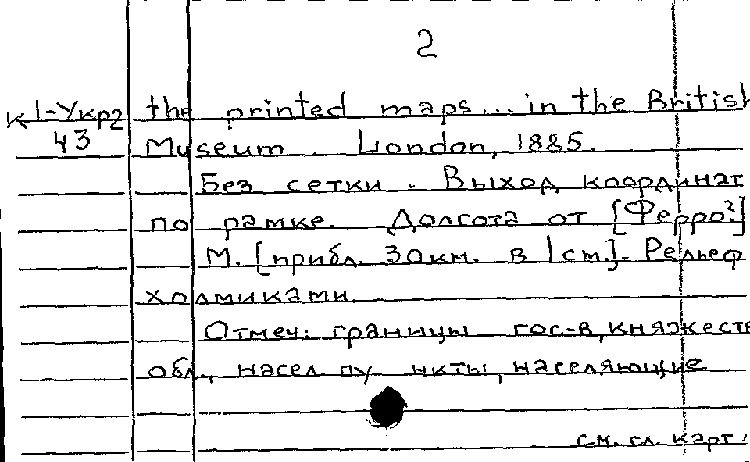 2
К1-Укр2 the printed maps... in the British
43 Museum. London, 1885.
Без сетки. Выход координат
по рамке. Долгота от [Ферро?]
М. [прибл. 30км. в 1см.]. Рельеф
холмиками.
Отмеч: границы гос-в, княжеств
обл., насел. пункты, населяющие
см. гл. карт.